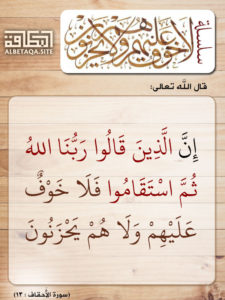 سلسلة
لا خوف عليهم ولا هم يحزنون
البطاقة
ALBETAQA.SITE
قال الله تعالى:
إِنَّ الَّذِينَ قَالُوا رَبُّنَا اللهُ
ثُمَّ اسْتَقَامُوا فَلَا خَوْفٌ
عَلَيْهِمْ وَلَا هُمْ يَحْزَنُونَ
(سورة الأحقاف : ١٣)